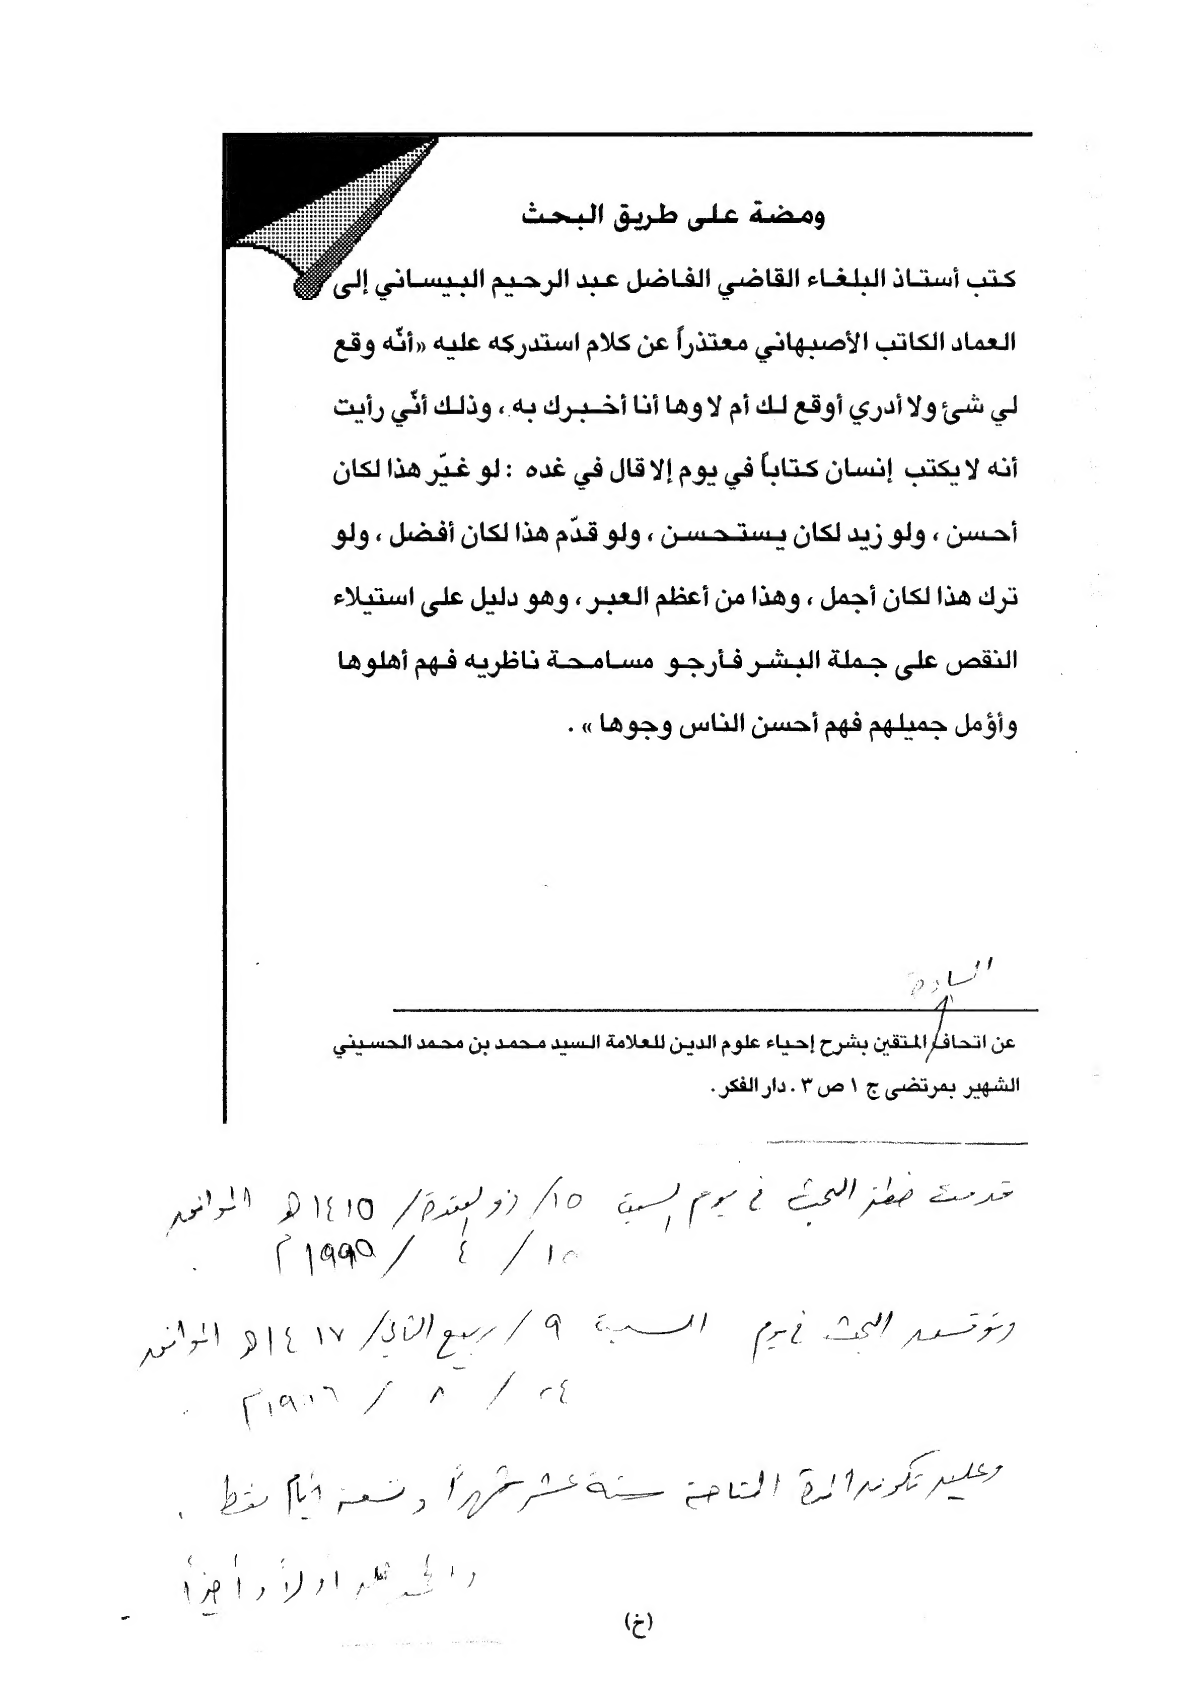 ومضة على طريق البحث
كتب أستاذ البلغاء القاضي الفاضل عبد الرحيم البيساني إلى
العماد الكاتب الأصبهاني معتذراً عن كلام استدركه عليه «أنّه وقع
لي شئ ولا أدري أوقع لك أم لا وها أنا أخبرك به ، وذلك أنّي رأيت
أنه لا يكتب إنسان كتاباً في يوم إلا قال في غده : لو غيّر هذا لكان
أحسن ، ولو زيد لكان يستحسن ، ولو قدّم هذا لكان أفضل ، ولو
ترك هذا لكان أجمل ، وهذا من أعظم العبر ، وهو دليل على استيلاء
النقص على جملة البشر فأرجو مسامحة ناظريه فهم أهلوها
وأؤمل جميلهم فهم أحسن الناس وجوها » .
السادة
عن اتحاف المتقين بشرح إحياء علوم الدين للعلامة السيد محمد بن محمد الحسيني
الشهير بمرتضى ج ١ ص ٣ . دار الفكر .
قدمت خطة البحث في يوم السبت ١٥/ ذو القعدة/ ١٤١٥هـ الموافق
١٥ / ٤ / ١٩٩٥م
البحث في يوم السبت ٩ / ربيع الثاني/ ١٤١٧هـ الموافق
/ ٨ /
وعليه تكون المدة المتاحة ستة عشر شهراً و أيام فقط .
والحمد لله أولاً وأخيراً
(خ)